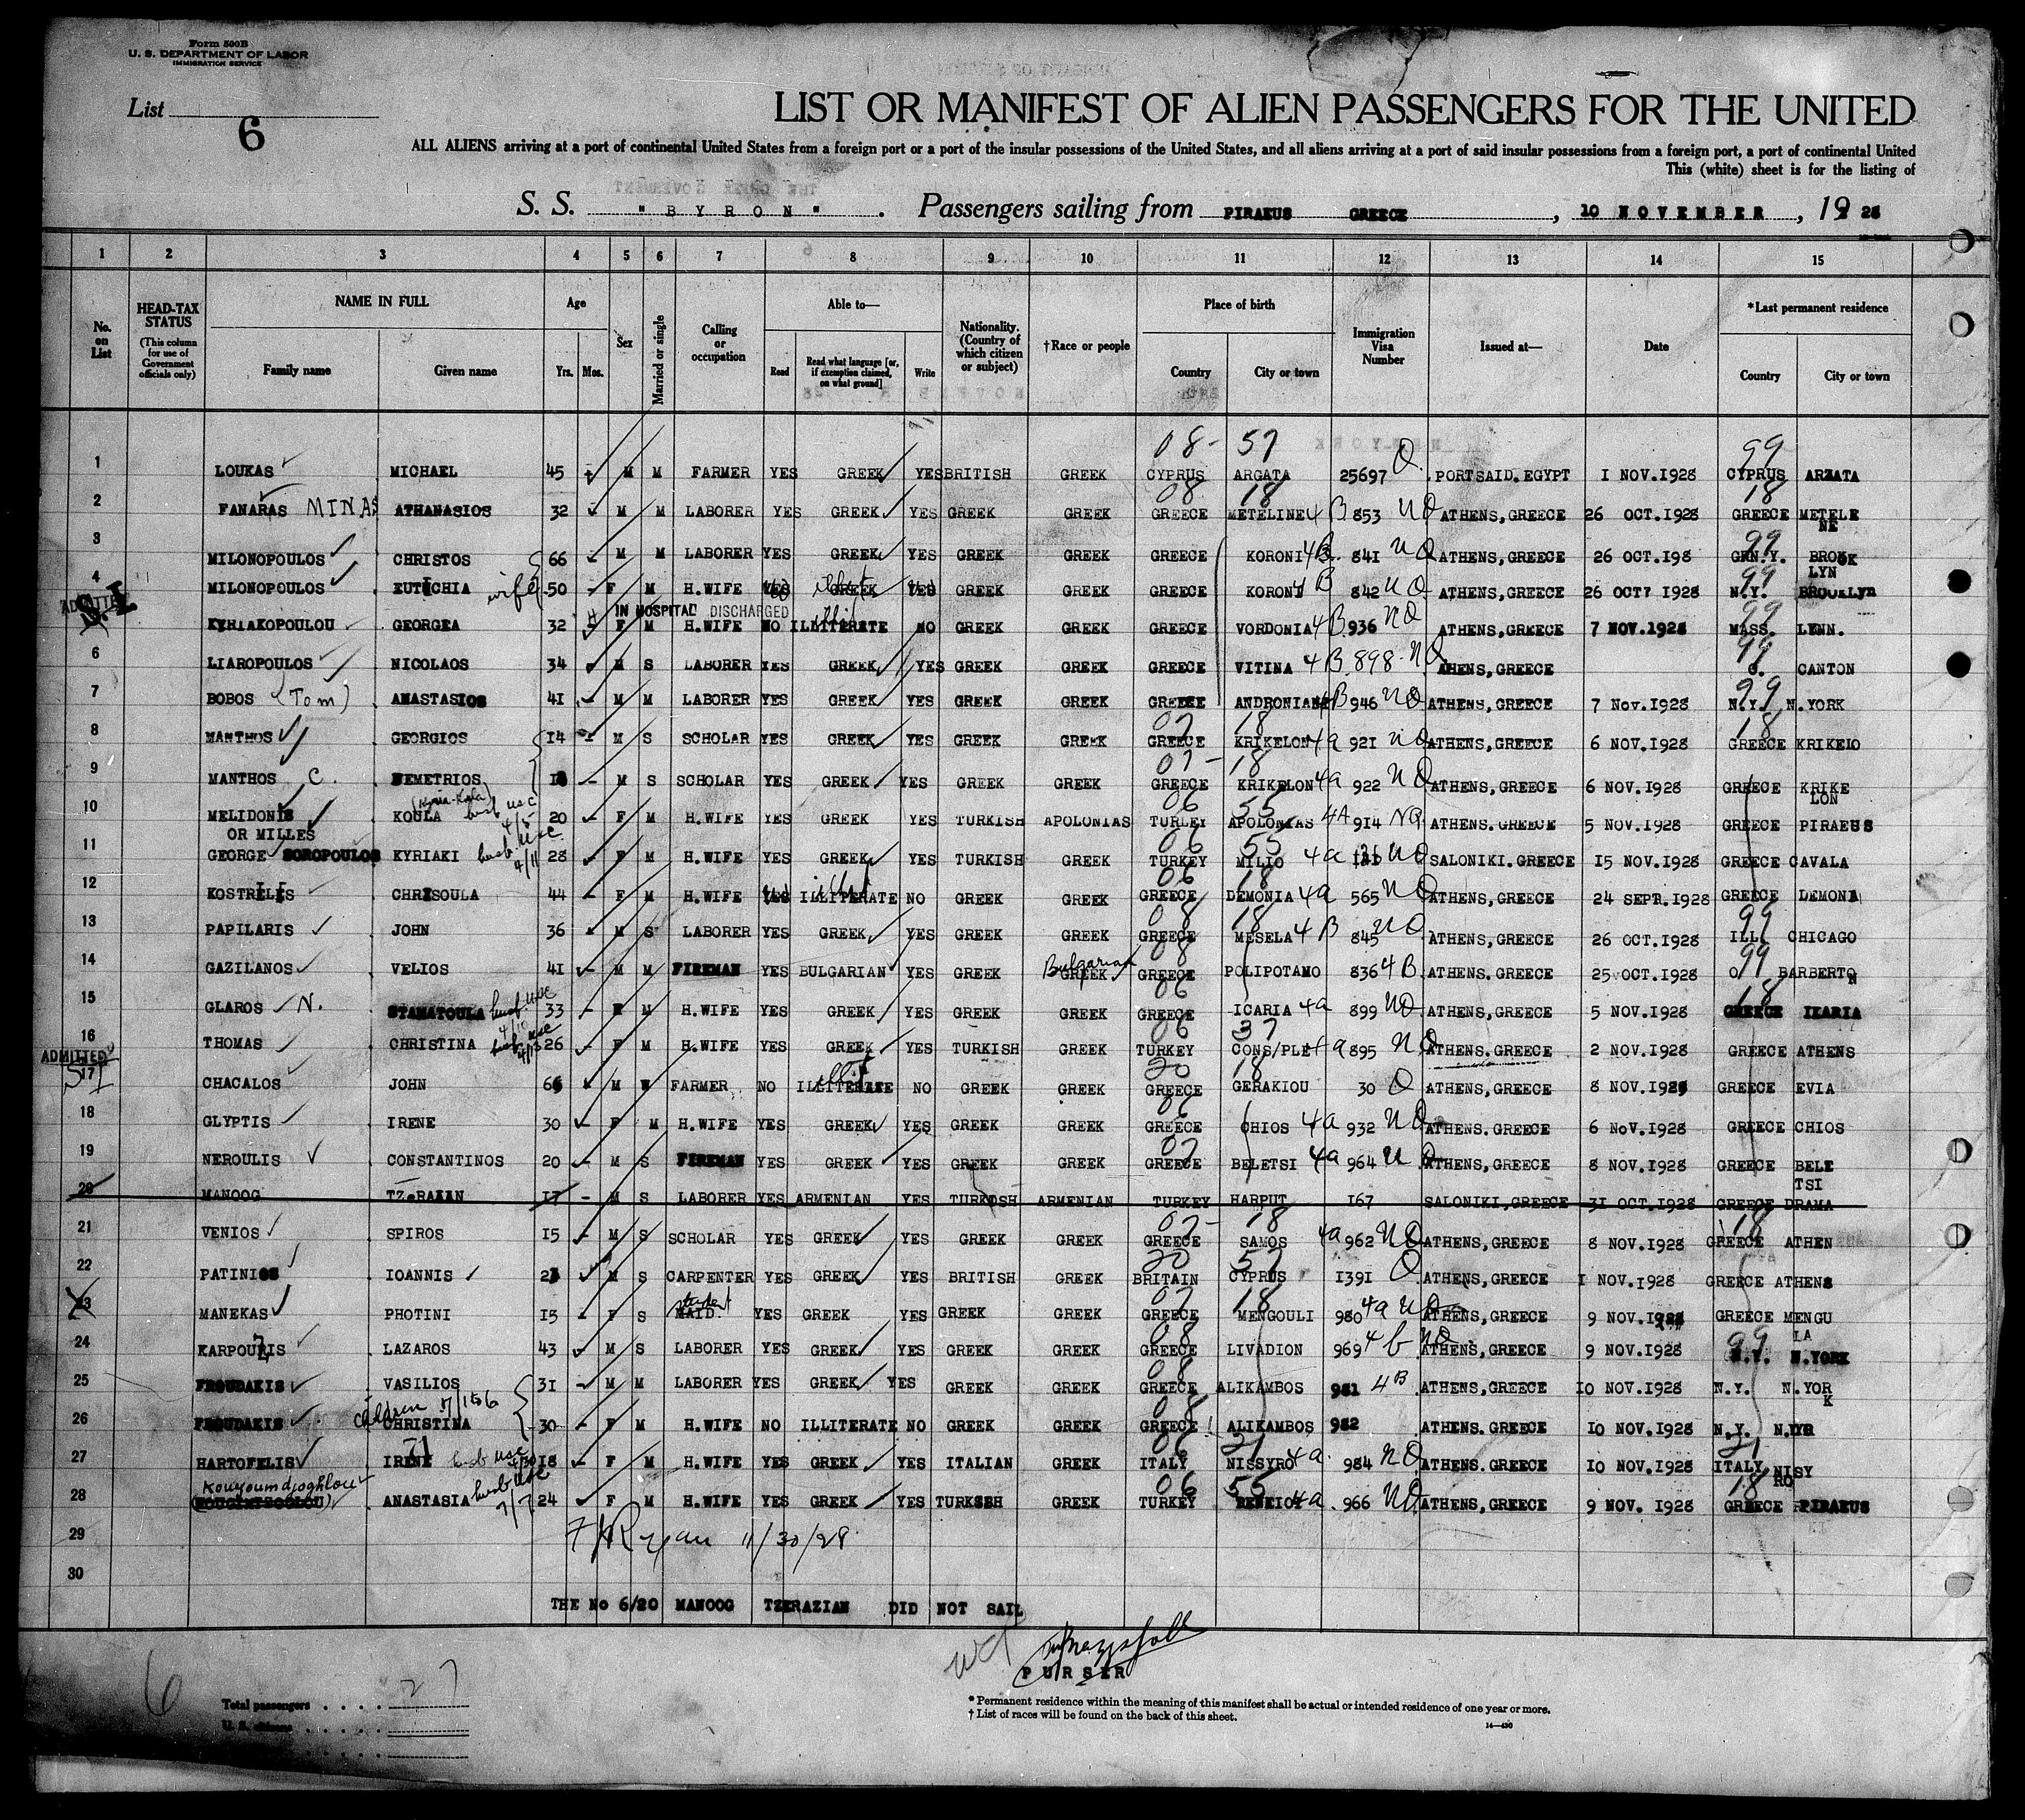 Form 500B
U. S. DEPARTMENT OF LABOR
IMMIGRATION SERVICE
List 6
LIST OR MANIFEST OF ALIEN PASSENGERS FOR THE UNITED
ALL ALIENS arriving at a port of continental United States from a foreign port or a port of the insular possessions of the United States, and all aliens arriving at a port of said insular possessions from a foreign port, a port of continental United
This (white) sheet is for the listing of
S. S. "BYRON". Passengers sailing from PIRAEUS GREECE, 10 NOVEMBER, 19 28
1 2 3 4 5 6 7 8 9 10 11 12 13 14 15
No. on List
HEAD-TAX STATUS (This column for use of Government officials only)
NAME IN FULL Family name Given name
Age Yrs. Mos.
Sex
Married or single
Calling or occupation
Able to— Read Read what language [or, if exemption claimed, on what ground] Write
Nationality. (Country of which citizen or subject)
†Race or people
Place of birth Country City or town
Immigration Visa Number
Issued at—
Date
*Last permanent residence Country City or town
08- 57 99
1 LOUKAS MICHAEL 45 M M FARMER YES GREEK YES BRITISH GREEK CYPRUS ARGATA 25697 PORTSAID.EGYPT 1 NOV.1928 CYPRUS ARZATA
08 18 18
2 FANARAS MINAS ATHANASIOS 32 M M LABORER YES GREEK YES GREEK GREEK GREECE METELINE 4B 853 NQ ATHENS,GREECE 26 OCT.1928 GREECE METELENE
99
3 MILONOPOULOS CHRISTOS 66 M M LABORER YES GREEK YES GREEK GREEK GREECE KORONI 4B 841 NQ ATHENS,GREECE 26 OCT.198 N.Y. BROOKLYN
99
4 MILONOPOULOS EUTICHIA wife 50 - F M H.WIFE GREEK GREEK GREEK GREECE KORONI 4B 842 NQ ATHENS,GREECE 26 OCT? 1928 N.Y. BROOKLYN
ADMITTED S.I IN HOSPITAL DISCHARGED 99
KYRIAKOPOULOU GEORGEA 32 F M H.WIFE NO ILLITERATE NO GREEK GREEK GREECE VORDONIA 4B 936 NQ ATHENS,GREECE 7 NOV.1928 MASS. LYNN.
99
6 LIAROPOULOS NICOLAOS 34 M S LABORER YES GREEK YES GREEK GREEK GREECE VITINA 4B 898 NQ AHENS,GREECE O. CANTON
99
7 BOBOS (Tom) ANASTASIOS 41 M M LABORER YES GREEK YES GREEK GREEK GREECE 4B 946 NQ ATHENS,GREECE 7 Nov.1928 N.Y. N.YORK
07 18 18
8 MANTHOS GEORGIOS 14 - M S SCHOLAR YES GREEK YES GREEK GREEK GREECE KRIKELON 4a 921 NQ ATHENS,GREECE 6 NOV.1928 GREECE KRIKELO
07- 18
9 MANTHOS C. DEMETRIOS - M S SCHOLAR YES GREEK YES GREEK GREEK GREECE KRIKELON 4a 922 NQ ATHENS,GREECE 6 NOV.1928 GREECE KRIKELON
06 55
10 MELIDONIS OR MILLES KOULA husb USC 20 F M H.WIFE YES GREEK YES TURKISH APOLONIAS TURLEY APOLONIAS 4A 914 NQ ATHENS.GREECE 5 NOV.1928 GREECE PIRAEUS
06 55
11 GEORGE SOROPOULOS KYRIAKI husb USC 4/11 28 F M H.WIFE YES GREEK YES TURKISH GREEK TURKEY MILIO 4a NQ SALONIKI.GREECE 15 NOV.1928 GREECE CAVALA
06 18
12 KOSTRELIS CHRISOULA 44 - F M H.WIFE YES ILLITERATE NO GREEK GREEK GREECE DEMONIA 4a 565 NQ ATHENS,GREECE 24 SEPT.1928 GREECE DEMONIA
08 18 99
13 PAPILARIS JOHN 36 M S LABORER YES GREEK YES GREEK GREEK GREECE MESELA 4B 845 NQ ATHENS,GREECE 26 OCT.1928 ILL CHICAGO
08 99
14 GAZILANOS VELIOS 41 - M M FIREMAN YES BULGARIAN YES GREEK Bulgarian GREEK GREECE POLIPOTAMO 836 4B ATHENS.GREECE 25 OCT.1928 O BARBERTON
06 18
15 GLAROS N. STAMATOULA husb. USC 4/10 33 - M H.WIFE YES GREEK YES GREEK GREEK GREECE ICARIA 4a 899 NQ ATHENS,GREECE 5 NOV.1928 GREECE IKARIA
06 37
16 THOMAS CHRISTINA USC 26 F M H.WIFE YES GREEK YES TURKISH GREEK TURKEY CONS/PLE 4a 895 NQ ATHENS.GREECE 2 NOV.1928 GREECE ATHENS
ADMITTED SI 20 18
17 CHACALOS JOHN M W FARMER NO ILLITERATE NO GREEK GREEK GREECE GERAKIOU 30 Q ATHENS,GREECE 8 NOV.1928 GREECE EVIA
06
18 GLYPTIS IRENE 30 F M H.WIFE YES GREEK YES GREEK GREEK GREECE CHIOS 4a 932 NQ ATHENS.GREECE 6 NoV.1928 GREECE CHIOS
07
19 NEROULIS CONSTANTINOS 20 - M S FIREMAN YES GREEK YES GREEK GREEK GREECE BELETSI 4a 964 NQ ATHENS,GREECE 8 NOV.1928 GREECE BELETSI
20 MANOOG TZeRAIAN 17 - M S LABORER YES ARMENIAN YES TURKISH ARMENIAN TURKEY HARPUT 167 SALONIKI,GREECE 31 OCT.1928 GREECE DRAMA
07- 18 18
21 VENIOS SPIROS 15 M S SCHOLAR YES GREEK YES GREEK GREEK GREECE SAMOS 4a 962 NQ ATHENS,GREECE 8 NOV.1928 GREECE ATHEN
20 57
22 PATINIOS IOANNIS M S CARPENTER YES GREEK YES BRITISH GREEK BRITAIN CYPRUS 1391 Q ATHENS,GREECE 1 NOV.1928 GREECE ATHENS
07 18
23 MANEKAS PHOTINI 15 - F S student MAID. YES GREEK YES GREEK GREEK GREECE MENGOULI 980 4a NQ ATHENS,GREECE 9 NOV.1928 GREECE MENGULA
08 99
24 KARPOUZIS LAZAROS 43 M S LABORER YES GREEK YES GREEK GREEK GREECE LIVADION 969 4b NQ ATHENS,GREECE 9 NOV.1928 N.Y. N.YORK
08
25 FROUDAKIS VASILIOS 31 - M M LABORER YES GREEK YES GREEK GREEK GREECE ALIKAMBOS 981 4B ATHENS,GREECE 10 NOV.1928 N.Y. N.YORK
08
26 FROUDAKIS children CHRISTINA 30 - F M H.WIFE NO ILLITERATE NO GREEK GREEK GREECE ALIKAMBOS 982 ATHENS.GREECE 10 NOV.1928 N.Y.
06 21 21
27 HARTOFELIS husb USC 18 F M H.WIFE YES GREEK YES ITALIAN GREEK ITALY NISSYRO 4a 984 NQ ATHENS.GREECE 10 NOV.1928 ITALY NISYRO
Kouyoumdjoghlou 06 55 18
28 ANASTASIA husb USC 7/7 24 F M H.WIFE YES GREEK YES GREEK TURKEY 4a 966 NQ ATHENS,GREECE 9 NOV. 1928 GREECE PIRAEUS
29 Ryan 11/30/28
30
THE No 6/20 MANOOG TZERAZIAN DID NOT SAIL
PURSER
6
Total passengers . . . . 27
U. S. citizens . . . . .
* Permanent residence within the meaning of this manifest shall be actual or intended residence of one year or more.
† List of races will be found on the back of this sheet.
14—430